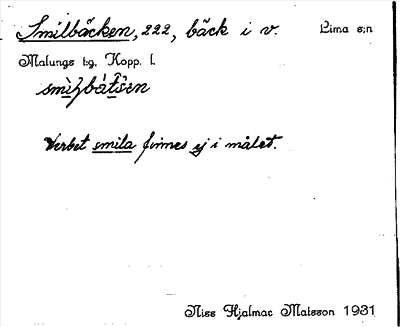 Smilbäcken, 222, bäck i v. Lima s:n
Malungs t:g, Kopp. l.
Verbet smila finnes ej i målet.
Niss Hjalmar Matsson 1931